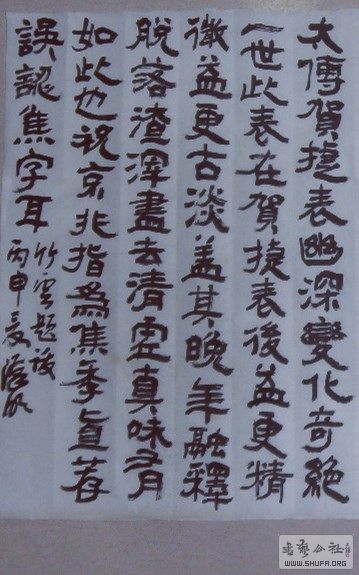 太傅賀捷表幽深變化奇絶
一世此表在賀捷表後益更精
微益更古淡蓋其晚年融釋
脫落渣滓盡去清虛真味有
如此也祝京兆指為焦季直荐
誤認焦字耳
竹雲題跋
丙申夏
書藝公社
WWW.SHUFA.ORG